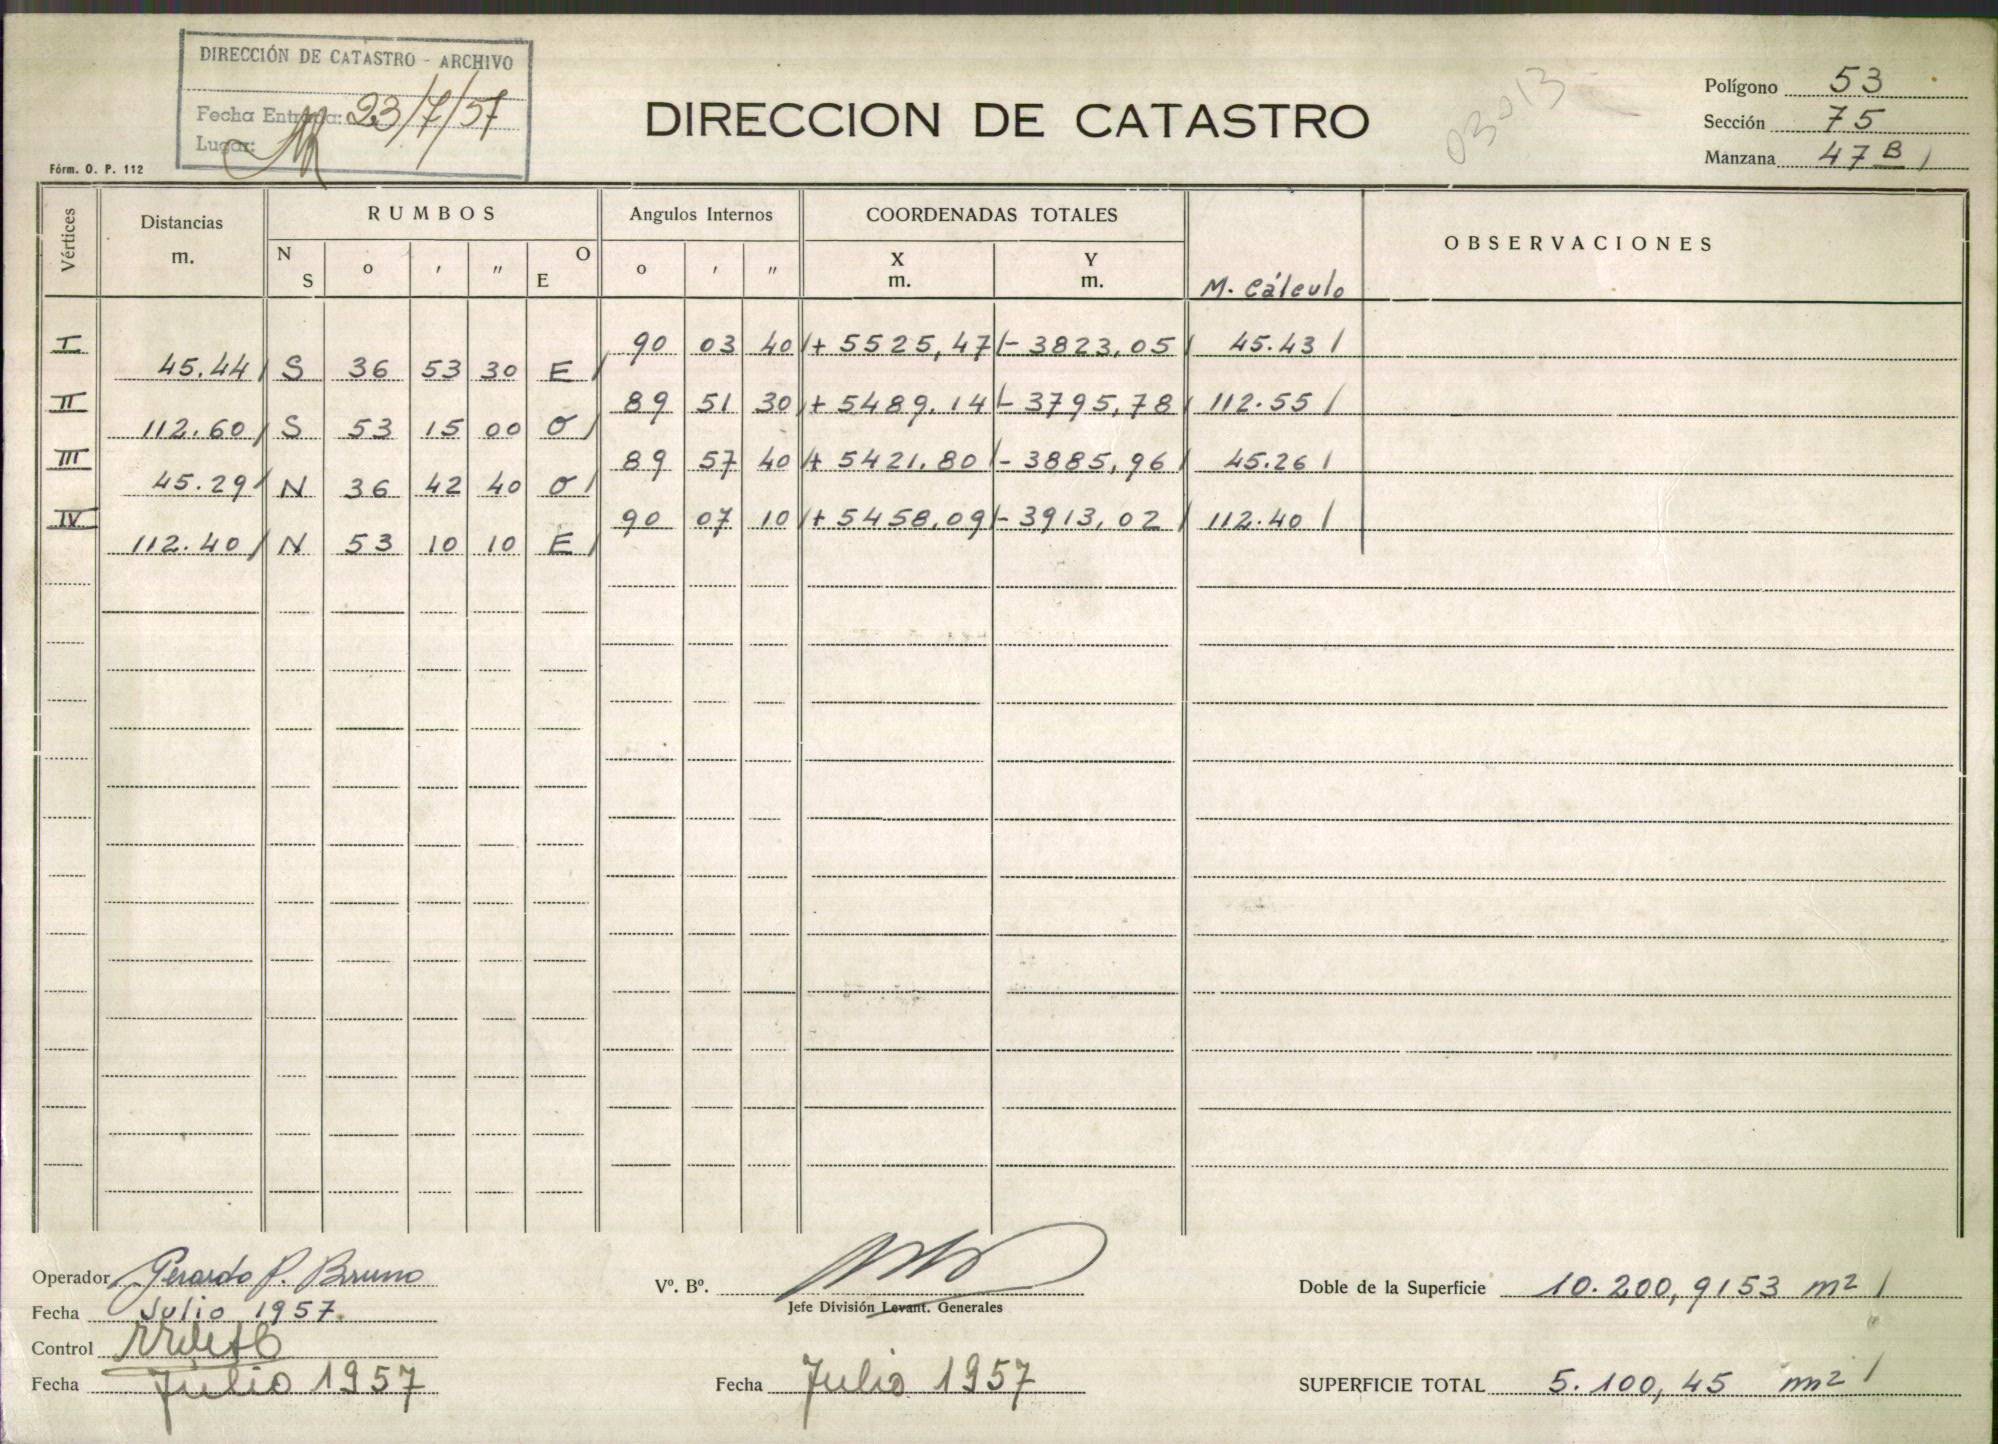 DIRECCIÓN DE CATASTRO - ARCHIVO
Fecha Entrada: 23/7/57
Lugar:
Fórm. O. P. 112
DIRECCION DE CATASTRO
03013
Polígono 53
Sección 75
Manzana 47 B /
Vértices Distancias m. RUMBOS Angulos Internos COORDENADAS TOTALES M. Cálculo OBSERVACIONES
N S o ′ ″ O E o ′ ″ X m. Y m.
I 90 03 40 / + 5525,47 / - 3823,05 / 45.43 /
45.44 / S 36 53 30 E /
II 89 51 30 / + 5489,14 / - 3795,78 / 112.55 /
112.60 / S 53 15 00 O /
III 89 57 40 / + 5421,80 / - 3885,96 / 45.26 /
45.29 / N 36 42 40 O /
IV 90 07 10 / + 5458,09 / - 3913,02 / 112.40 /
112.40 / N 53 10 10 E /
Operador Gerardo P. Bruno
Fecha Julio 1957.
Control
Fecha Julio 1957
Vº. Bº.
Jefe División Levant. Generales
Fecha Julio 1957
Doble de la Superficie 10.200,9153 m2 /
SUPERFICIE TOTAL 5.100,45 m2 /